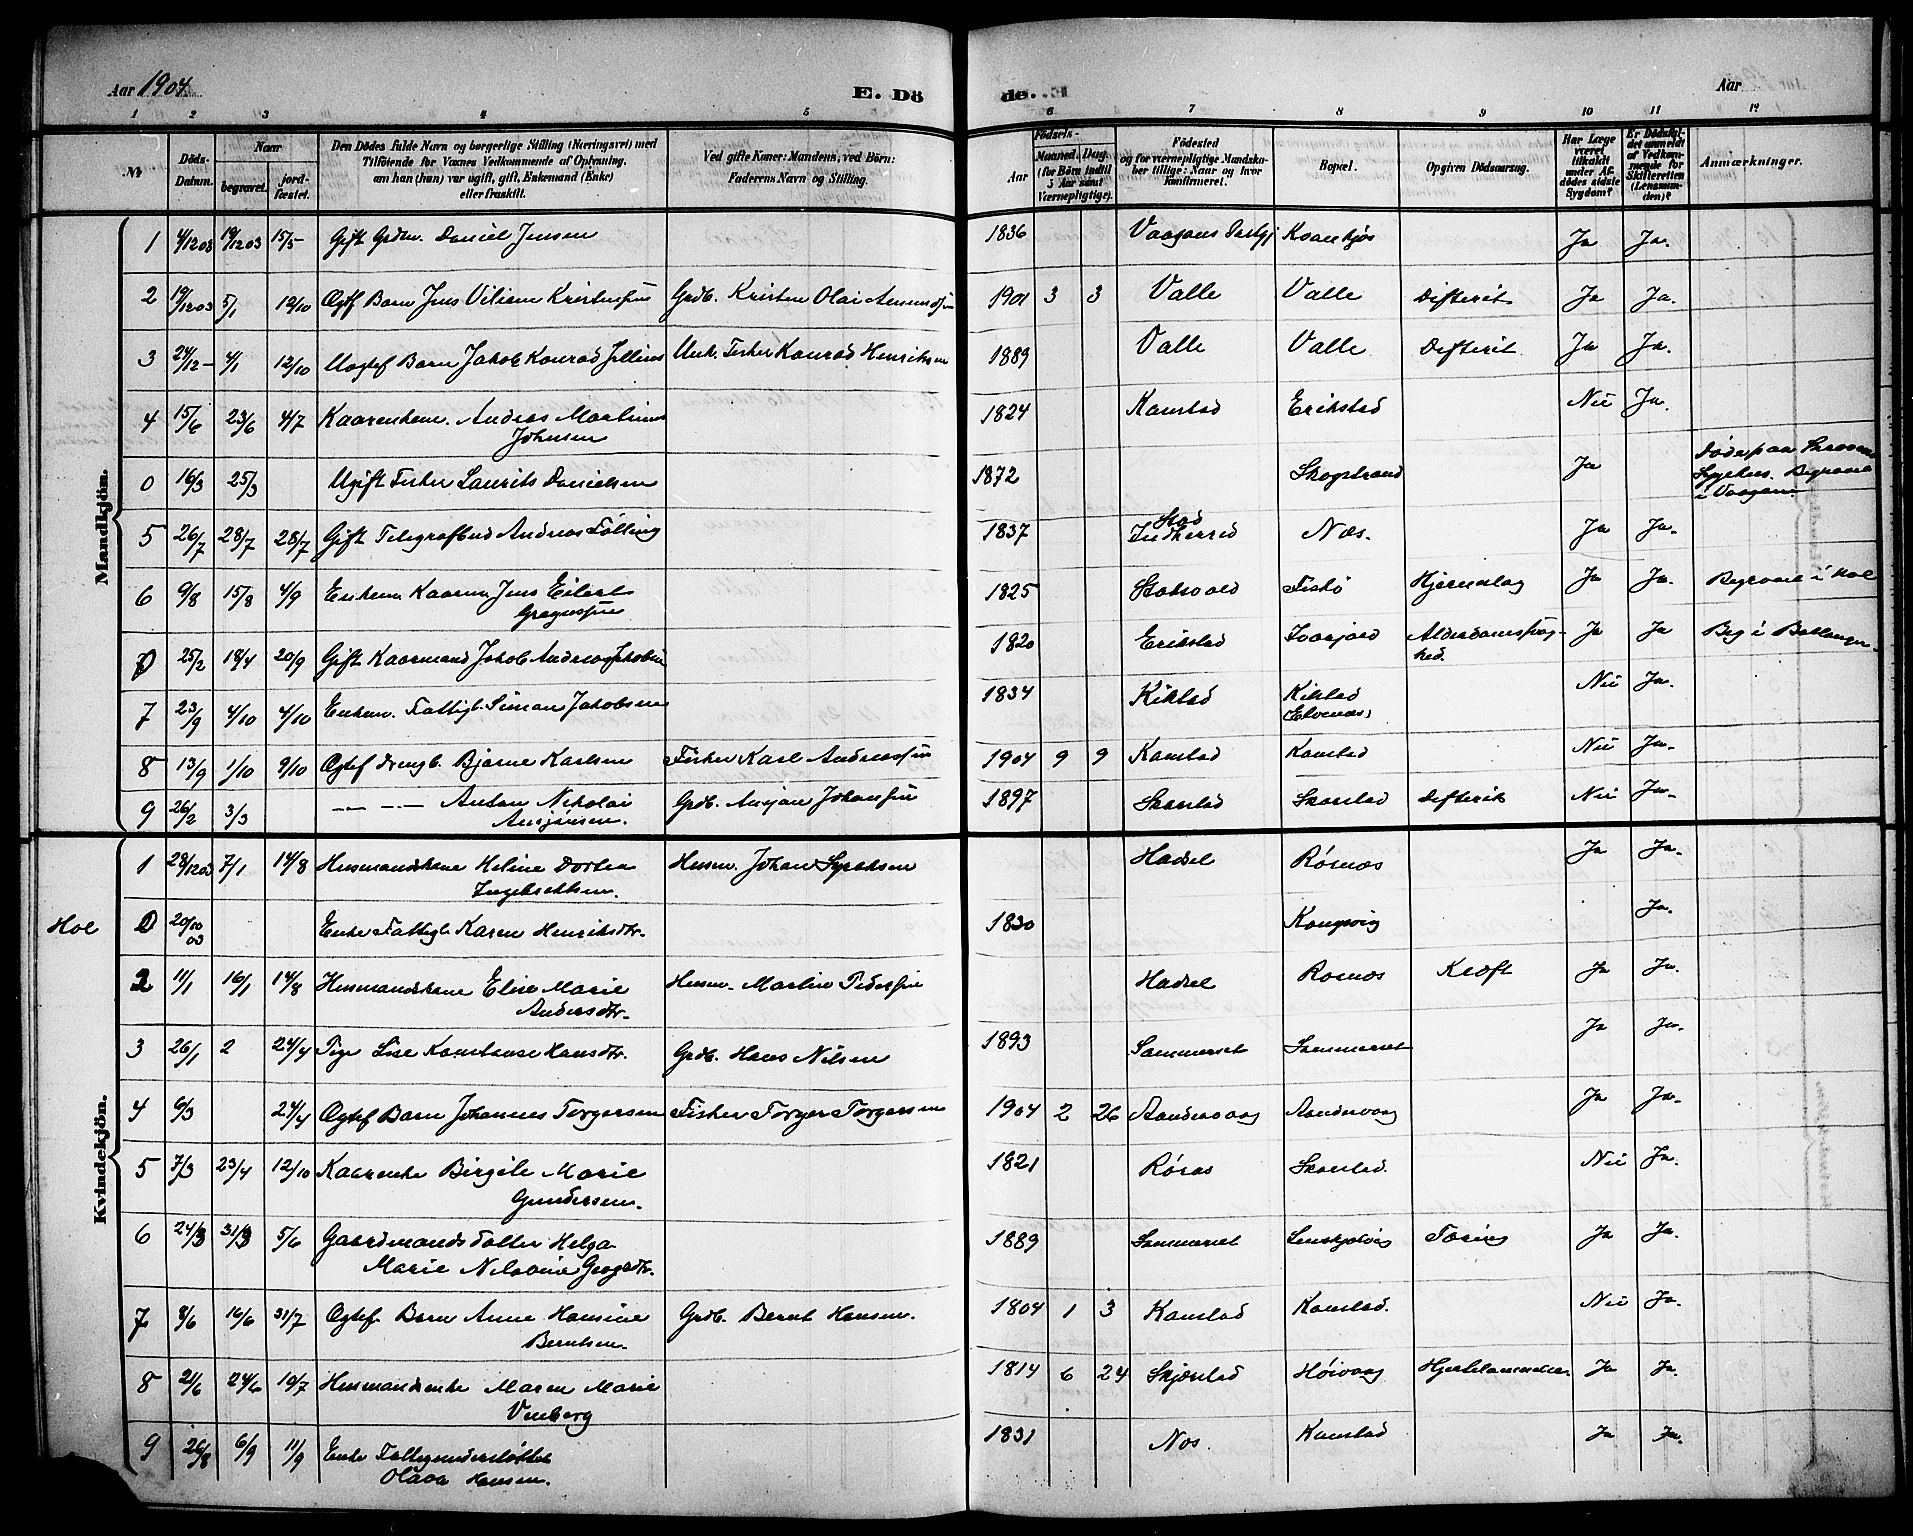 Aar 1904.
E. Dö
de.
Aar
1 2 3 4 5 6 7 8 9 10 11 12
No
Döds-Datum.
Naar
begravet.
jord-fæstet.
Den Dødes fulde Navn og borgerlige Stilling (Næringsvei) med
Tilföiende for Voxnes Vedkommende af Oplysning,
om han (hun) var ugift, gift, Enkemand (Enke)
eller fraskilt.
Ved gifte Koner: Mandens, ved Börn:
Faderens Navn og Stilling.
Födsels-
Aar
Maaned. Dag.
(for Börn indtil
5 Aar samt
Værnepligtige).
Födested
og for værnepligtige Mandska-
ber tillige: Naar og hvor
konfirmeret.
Bopæl.
Opgiven Dödsaarsag.
Har Læge
været
tilkaldt
under Af-
dödes sidste
Sygdom?
Er Dödsfal-
det anmeldt
af Vedkom-
mende for
Skifteretten
(Lensman-
den)?
Anmærkninger.
Mandkjön.
1 4/12 03 19/12 03 15/5 Gift Grdm. Daniel Jensen 1836 Vaagans Kvankjøs Ja Ja.
2 19/12 03 5/1 12/10 Ægtf Barn Jens Viliem Kristensen Grdb. Kristen Olai 1901 3 3 Valle Valle Difterit Ja Ja.
3 24/12 - 4/1 12/10 Uægtef Barn Jakob Konrad Unk. Fisker Konrad Henriksen 1889 Valle Valle Difterit Ja Ja.
4 15/6 23/6 4/7 Kaarenkem. Andreas Martinus
Johnsen 1824 Kanstad Erikstad Nei Ja.
0 16/3 25/3 Ugift Fisker Laurits Danielsen 1872 Skogstrand Ja Døde paa
Sygehus. Begravet
i Vaagan.
5 26/7 28/7 28/7 Gift Telegrafbud Andreas Følling 1837 Stod
Indherred Næs. Ja Ja.
6 9/8 15/8 4/9 Enkem Kaarm Jens Eilert
1825 Fiskø Hjerneslag Ja Ja. Begravet i Hol
0 25/2 18/4 20/9 Gift Kaarmand Jakob Andreas Jakobsen 1820 Erikstad Alderdomssvag-
hed. Ja Ja Beg i
7 23/9 4/10 4/10 Enkem. Fattigl. Simon Jakobsen 1834 Kilstad Kilstad
Nei Ja.
8 13/9 1/10 9/10 Ægtef drengb. Bjarne Karlsen Fisker Karl Andreassen 1904 9 9 Kanstad Kanstad Nei Ja.
9 26/2 3/3 — — — Anton Nikolai
Ansjønsen. Grdb. Ansjøn Johansen 1897 Skarstad Skarstad Difterit Nei Ja.
Kvindekjön.
1 28/12 03 7/1 14/8 Husmandskone Heline Dortea
Ingebrektsen. Husm. Johan Hadsel Rørnæs Ja Ja.
Hol 0 20/10 03 Enke Fattigl. Karen Henriksdtr. 1830 Kongsvig Ja.
2 11/1 16/1 14/8 Husmandskone Elise Marie
Andersdtr. Husm. Martin Pedersen Hadsel Rørnæs Kræft Ja Ja.
3 26/1 2 24/4 Pige Lise Konstanse Hansdtr. Grdb. Hans Nilsen 1893 Sommerset Sommerset Ja Ja.
4 6/3 24/4 Ægtef Barn Johannes Torgersen Fisker Torger Torgersen 1904 2 26 Aandervaag Aandervaag Ja Ja.
5 7/3 23/4 12/10 Kaarenke Birgite Marie
Gundersen. 1821 Røraas Skarstad. Nei Ja.
6 24/3 31/3 5/6 Gaardmandsdatter Helga
Marie 1889 Sommerset Tæring Ja Ja.
7 8/6 16/6 31/7 Ægtef. Barn Anne Hansine
Berntsen. Grdb. Bernt Hansen. 1804 1 3 Kanstad Kanstad. Nei Ja.
8 21/6 24/6 10/7 Husmandsenke Maren Marie
Venberg 1814 6 24 Skjærstad Høivaag Ja Ja.
9 26/8 6/9 11/9 Enke Fattigunderstøttet
Olava Hansen. 1831 Næs. Kanstad Ja Ja.